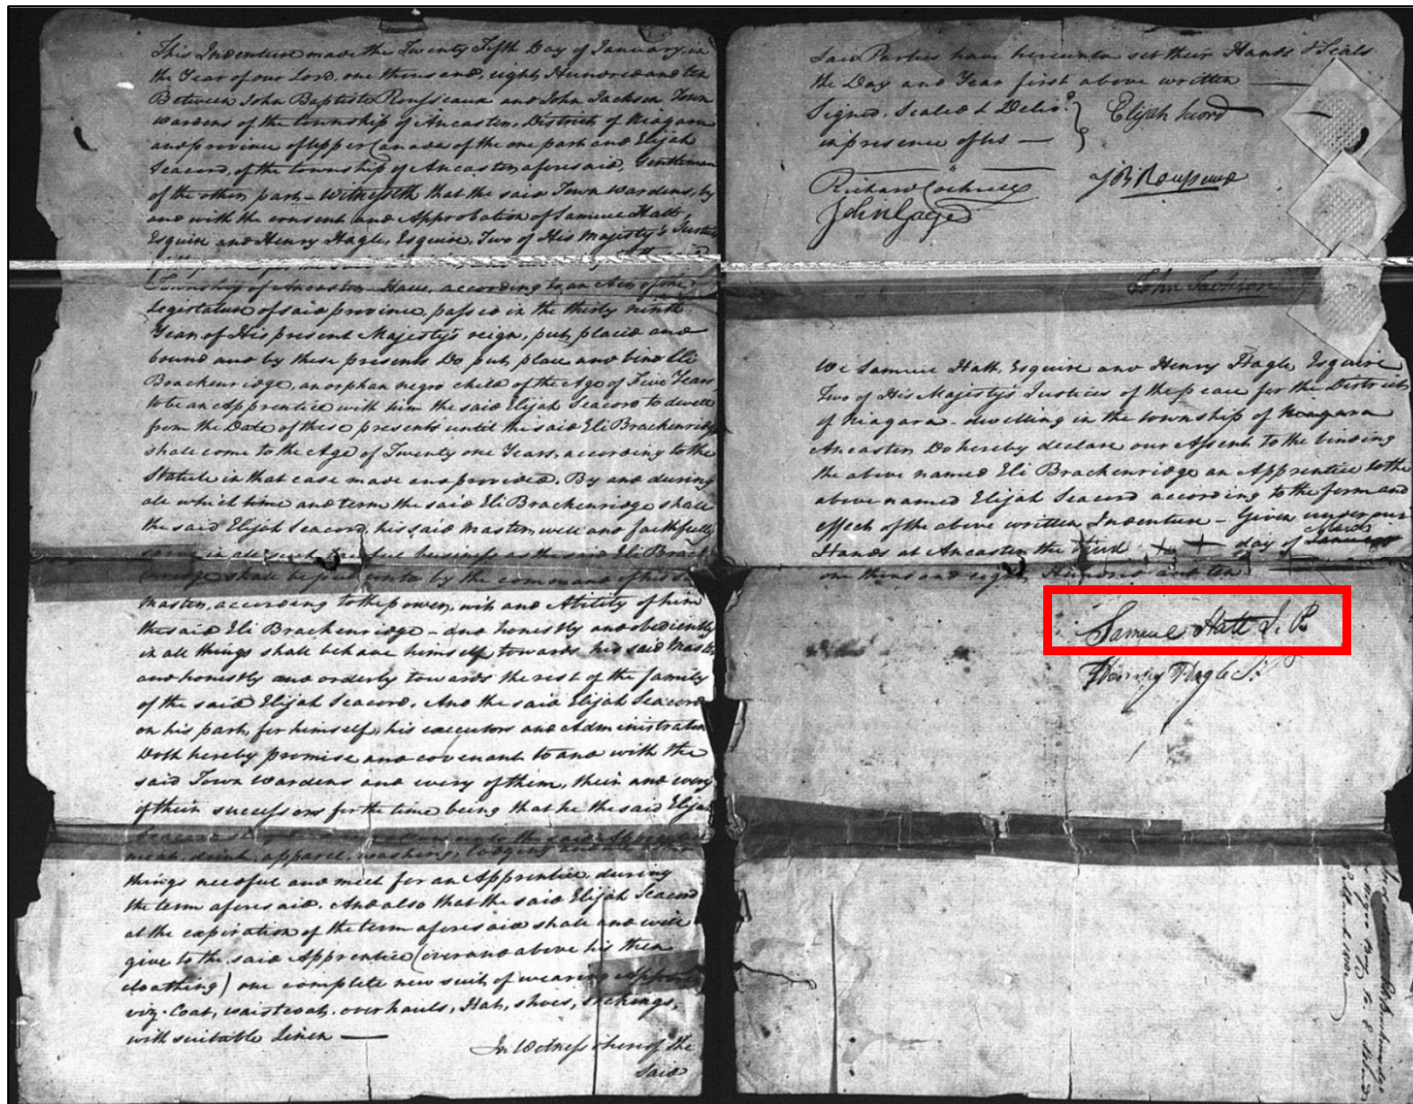 This Indenture made the Twenty Fifth Day of January, in
the Year of our Lord, one thousand, eight Hundred and ten
Between John Baptiste Rousseaux and John Jackson Town
Wardens of the township of Ancaster, Districts of Niagara
and province of Upper Canada of the one part and Elijah
Seacord, of the township of Ancaster aforesaid, Gentleman
of the other part – Witnesseth that the said Town Wardens, by
and with the consent and Approbation of Samuel Hatt,
Esquire and Henry Hagle, Esquire, Two of His Majesty's Justices
Township of Ancaster – Have, according to, an Act of the
Legislature of said province, passed in the thirty ninth
Year of His present Majesty's reign, put, placed and
bound and by these presents Do put, place and bind Eli
Brackenridge, an orphan negro child of the Age of Five Years
to be an Apprentice with him the said Elijah Seacord to dwell
from the Date of these presents until the said Eli Brackenridge
shall come to the Age of Twenty one Years, according to the
Statute in that case made and provided. By and during
all which time and term the said Eli Brackenridge shall
the said Elijah Seacord, his said Master, well and faithfully
serve in all such lawful business as the said Eli Brack
enridge shall be put unto by the command of his said
Master, according to the power, wit and Ability of him
the said Eli Brackenridge – and honestly and obediently
in all things shall behave himself towards his said Master,
and honestly and orderly towards the rest of the family
of the said Elijah Seacord. And the said Elijah Seacord
on his part, for himself, his executors and Administrators
Doth hereby promise and covenant to and with the
said Town Wardens and every of them, their and every
of their successors for the time being that he the said Elijah
Seacord shall unto the said Apprentice
meat, drink, apparel, washing, lodging and all other
things needful and meet for an Apprentice, during
the term aforesaid. And also that the said Elijah Seacord
at the expiration of the term aforesaid shall and will
give to the said Apprentice (over and above his then
cloathing) one complete new suit of wearing apparel
viz. Coat, waistcoat, overhauls, Hat, shoes, stockings,
with suitable Linen —
In Witness whereof the
said
Said Parties have hereunto set their Hands & Seals
the Day and Year first above written
Signed, Sealed & Deliv.d
in presence of us —
Elijah Secord
Richard Cockrell
John Gage
J B Rousseaux
John Jackson
We Samuel Hatt, Esquire and Henry Hagle, Esquire
Two of His Majesty's Justices of the peace for the District
of Niagara – dwelling in the township of Niagara
Ancaster Do hereby declare our Assent to the binding
the above named Eli Brackenridge an Apprentice to the
above named Elijah Seacord according to the form and
effect of the above written Indenture – Given under our
Hands at Ancaster the third day of January March
one thousand eight Hundred and ten
Samuel Hatt J. P.
Henry Hagle J. P